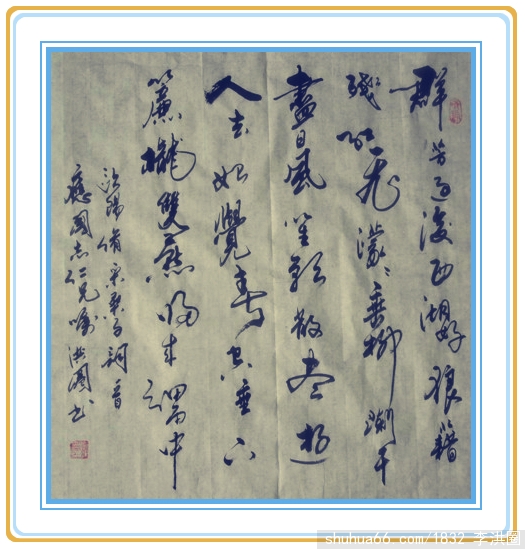 群芳過後西湖好狼籍
殘紅飛濛〻垂柳闌干
盡日風笙歌散盡遊
人去始覺春空垂下
簾櫳雙燕歸來細雨中
歐陽脩采桑子詞一首
應國志仁兄囑洪圖书
shuhua66.com/1832 李洪图